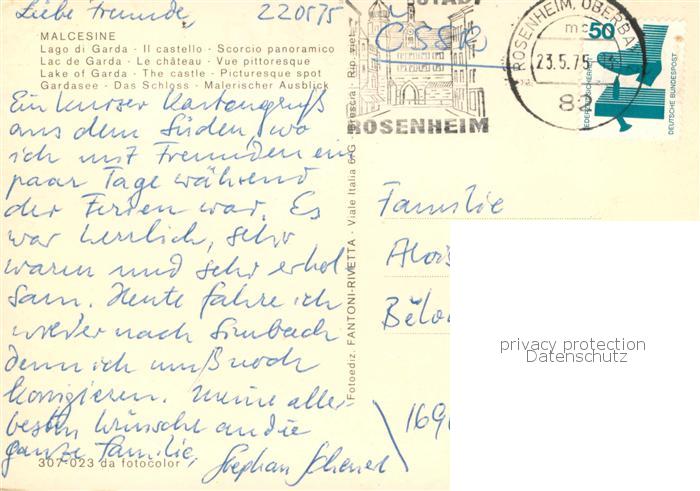 Liebe Freunde, 220575
MALCESINE
Lago di Garda - Il castello - Scorcio panoramico
Lac de Garde - Le château - Vue pittoresque
Lake of Garda - The castle - Picturesque spot
Gardasee - Das Schloss - Malerischer Ausblick
Ein kurzer Kartengruß
aus dem Süden, wo
ich mit Freunden ein
paar Tage während
der Ferien war. Es
war herrlich, sehr
warm und sehr erhol
sam. Heute fahre ich
wieder nach Simbach
denn ich muß noch
korrigieren. Meine aller-
besten Wünsche an die
ganze Familie,
Stephan
307-023 da fotocolor
Fotoediz. FANTONI-RIVETTA - Viale Italia 6/G - Brescia - Rip. viet.
STADT
ROSENHEIM
ČSSR
ROSENHEIM, OBERBAY
mc
23.5.75
82
50
DEUTSCHE BUNDESPOST
Familie
Alois
Bělo
169
privacy protection
Datenschutz